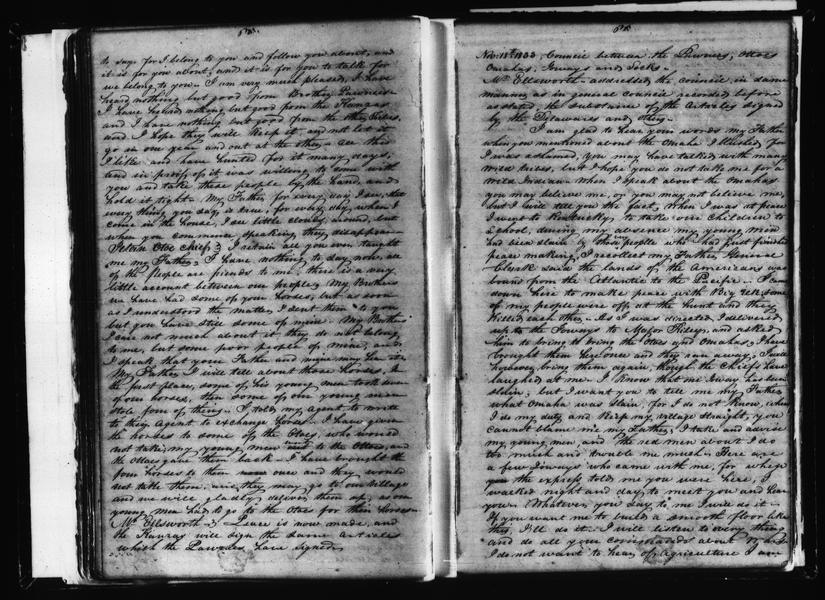 to say for I belong to you and follow you about, and
it is for you about, and it is for you to talk for
we belong to you. I am very much pleased, I have
heard nothing but good from Brother Pawnees
I have heard nothing but good from the Kanzas
and I have nothing but good from the other tribes.
and I hope they will keep it and not let it
go in one year and out at the other. all this
I like and have hunted for it many days,
and in proof of it was willing to come with
you and take these people by the hand, and
hold it tight. My Father, for every day I see, that
every thing you say is true, for every day when I
come in the house, I see little clouds around, but
when you commence speaking they disappear
Ietan Otoe chief. I retain all you ever taught
me my Father. I have nothing to day now, all
of the people are friends to me there is a very
little account between our people. My Brothers
we have had some of your horses, but as soon
as I understood the matter I sent them to you
but you have still some of mine. My Brother
I care not much about it, they do not belong
to me, but some poor people of mine, and
I speak that your Father and mine may hear it
My Father I will tell about those horses. In
the first place, some of his young men took seven
of our horses, then some of our young men
stole four of theirs. I told my Agent to write
to their Agent to exchange horses. I have given
the horses to some of the Otoes, who would
not take, my young men sent to the Ottoes, and
the Ottoes gave them back. I have brought the
four horses to them once and they would
not take them. and they may go to our village
and we will gladly deliver them up, as our
young men had to go to the Otoes for their horses
Mr Ellsworth. Peace is now made, and
the Kanzas will sign the same articles
which the Pawnees have signed.
Nov. 1833, Council between the Pawnees, Ottoes
Omahas, Ioways and Sacks.
Mr Ellsworth addressed the council in same
manner as in general council recorded before
as stated, the substance of the articles signed
by the Delawares and others.
I am glad to hear your words my Father
when you mentioned about the Omaha I blushed for
I was ashamed, you may have talked with many
wild tribes, but I hope you do not take me for a
wild Indian. When I speak about the Omahas
you may believe me, or you may not believe me,
but I will tell you the fact, When I was at peace
I went to Kentucky, to take over children to
School, during my absence my young men
had been slain by those people who had just finished
peace making, I recollect my Father General
Clark said the lands of the Americans was
bound from the Atlantic to the Pacific. I am
down here to make peace with Big tell, some
of my people were off at the hunt and they
killed each other. As I was directed I delivered
up the Ioways to Major Riley, and asked
him to bring to bring the Otoes and Omahas, I have
brought them here once and they ran away, I will
however bring them again, though the Chiefs have
laughed at me. I know that one Ioway has been
slain, but I want you to tell me my Father
what Omaha was slain, for I do not know, when
I do my duty and keep my village straight, you
cannot blame me my Father, I take and advise
my young men, and the red men about I do
too much and trouble me much. Here are
a few Ioways who came with me, for when
the express told me you were here, I
walked night and day to meet you and hear
you. Whatever you say to me I will do it.
If you want me to build a smooth floor like
this, I'll do it. I will listen to every thing
and do all your commands about
I do not want to hear of agriculture I am